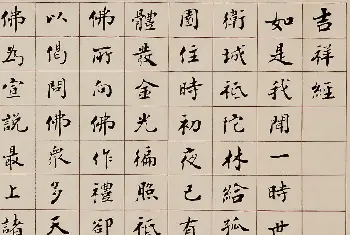 吉祥經
如是我聞一時世
衛城祇陀林給孤
園住時初夜已有
體發金光徧照祇
佛所向佛作禮卻
以偈問佛眾多天
佛為宣說最上諸